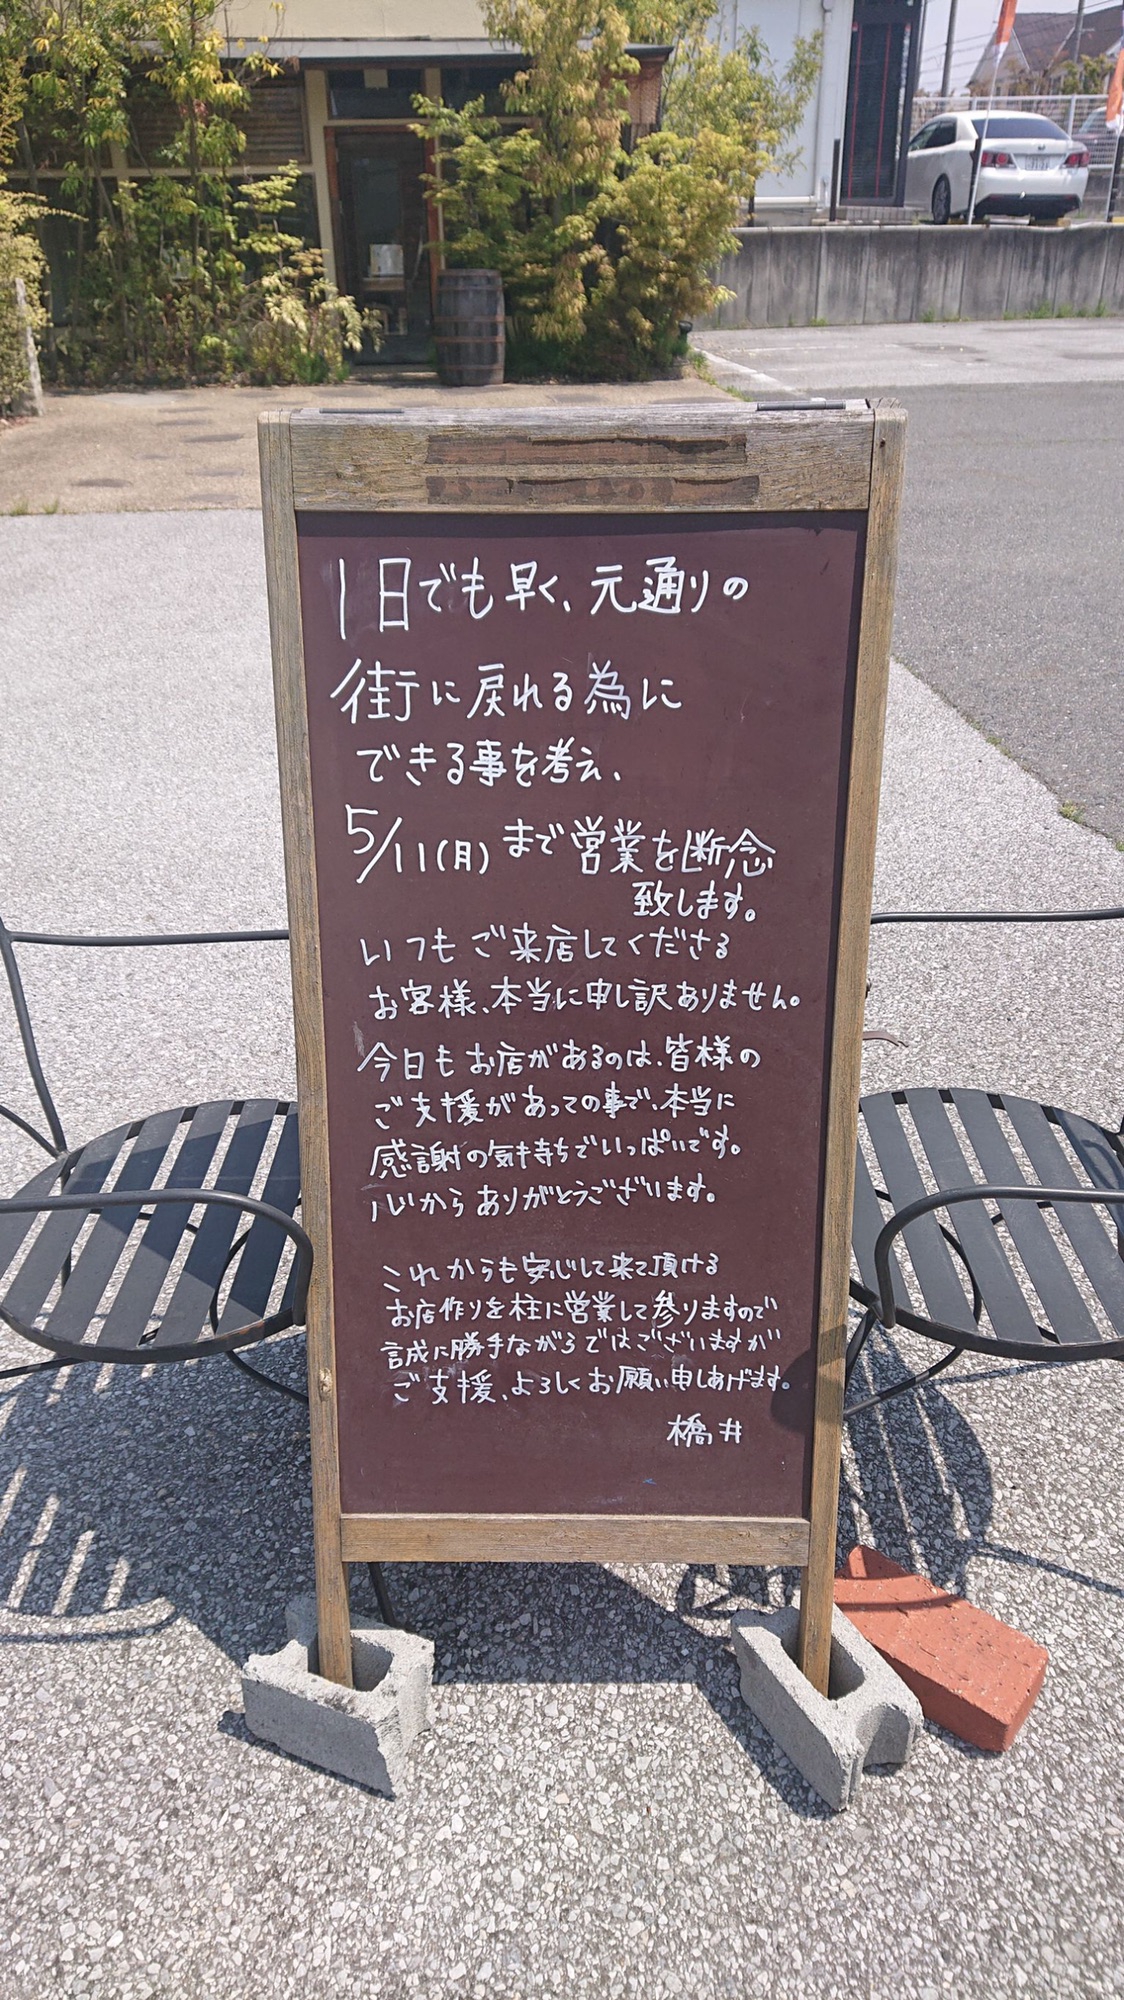 1日でも早く、元通りの
街に戻れる為に
できる事を考え、
5/11(月)まで営業を断念
致します。
いつもご来店してくださる
お客様、本当に申し訳ありません。
今日もお店があるのは、皆様の
ご支援があっての事で、本当に
感謝の気持ちでいっぱいです。
心からありがとうございます。
これからも安心して来て頂ける
お店作りを柱に営業して参りますので
誠に勝手ながらではございますが
ご支援、よろしくお願い申しあげます。
橋井